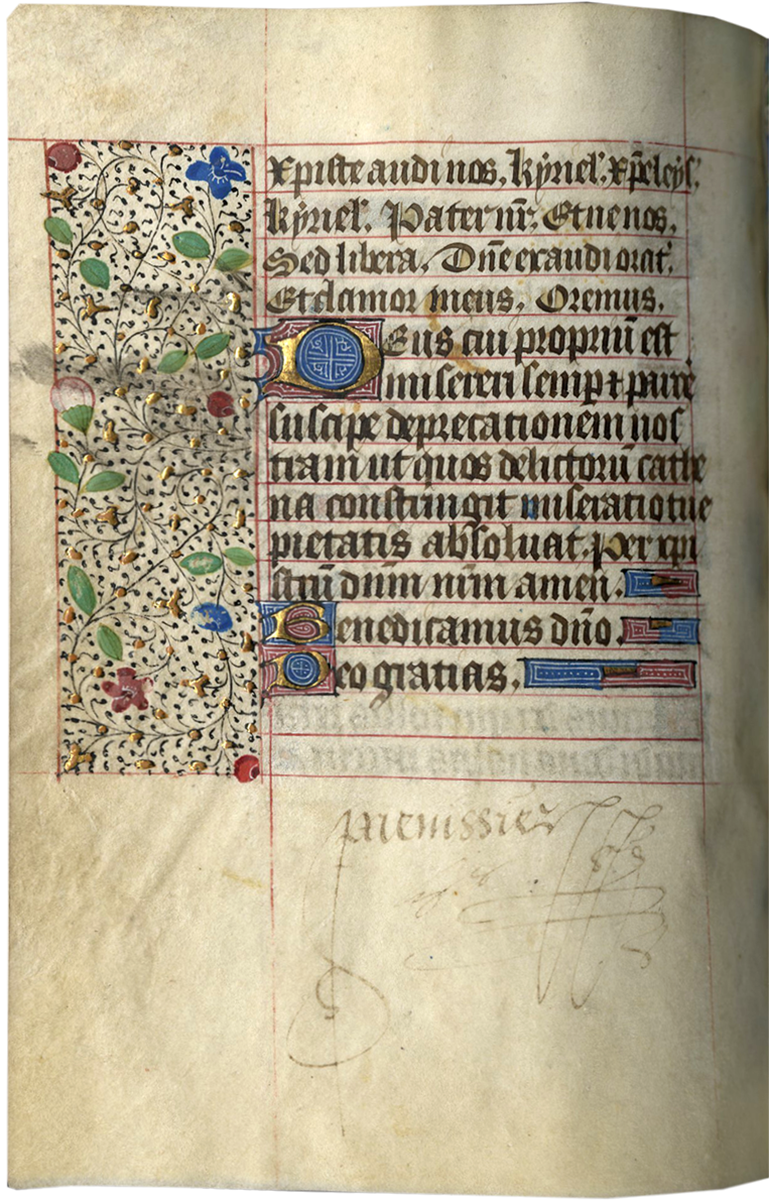 Xpiste audi nos. kyriel'. xp̄eleyſ'.
kyriel'. Pater nr̄. Et ne nos.
Sed libera. Dn̄e exaudi orat'.
Et clamor meus. Oremus.
Deus cui propriū est
misereri semp ⁊ parcē
suscipe deprecationem nos
tram ut quos delictorū cathe
na constringit miseratio tue
pietatis absoluat. Per xpi
stū dnm nrm amen.
Benedicamus dn̄o.
Deo gratias.